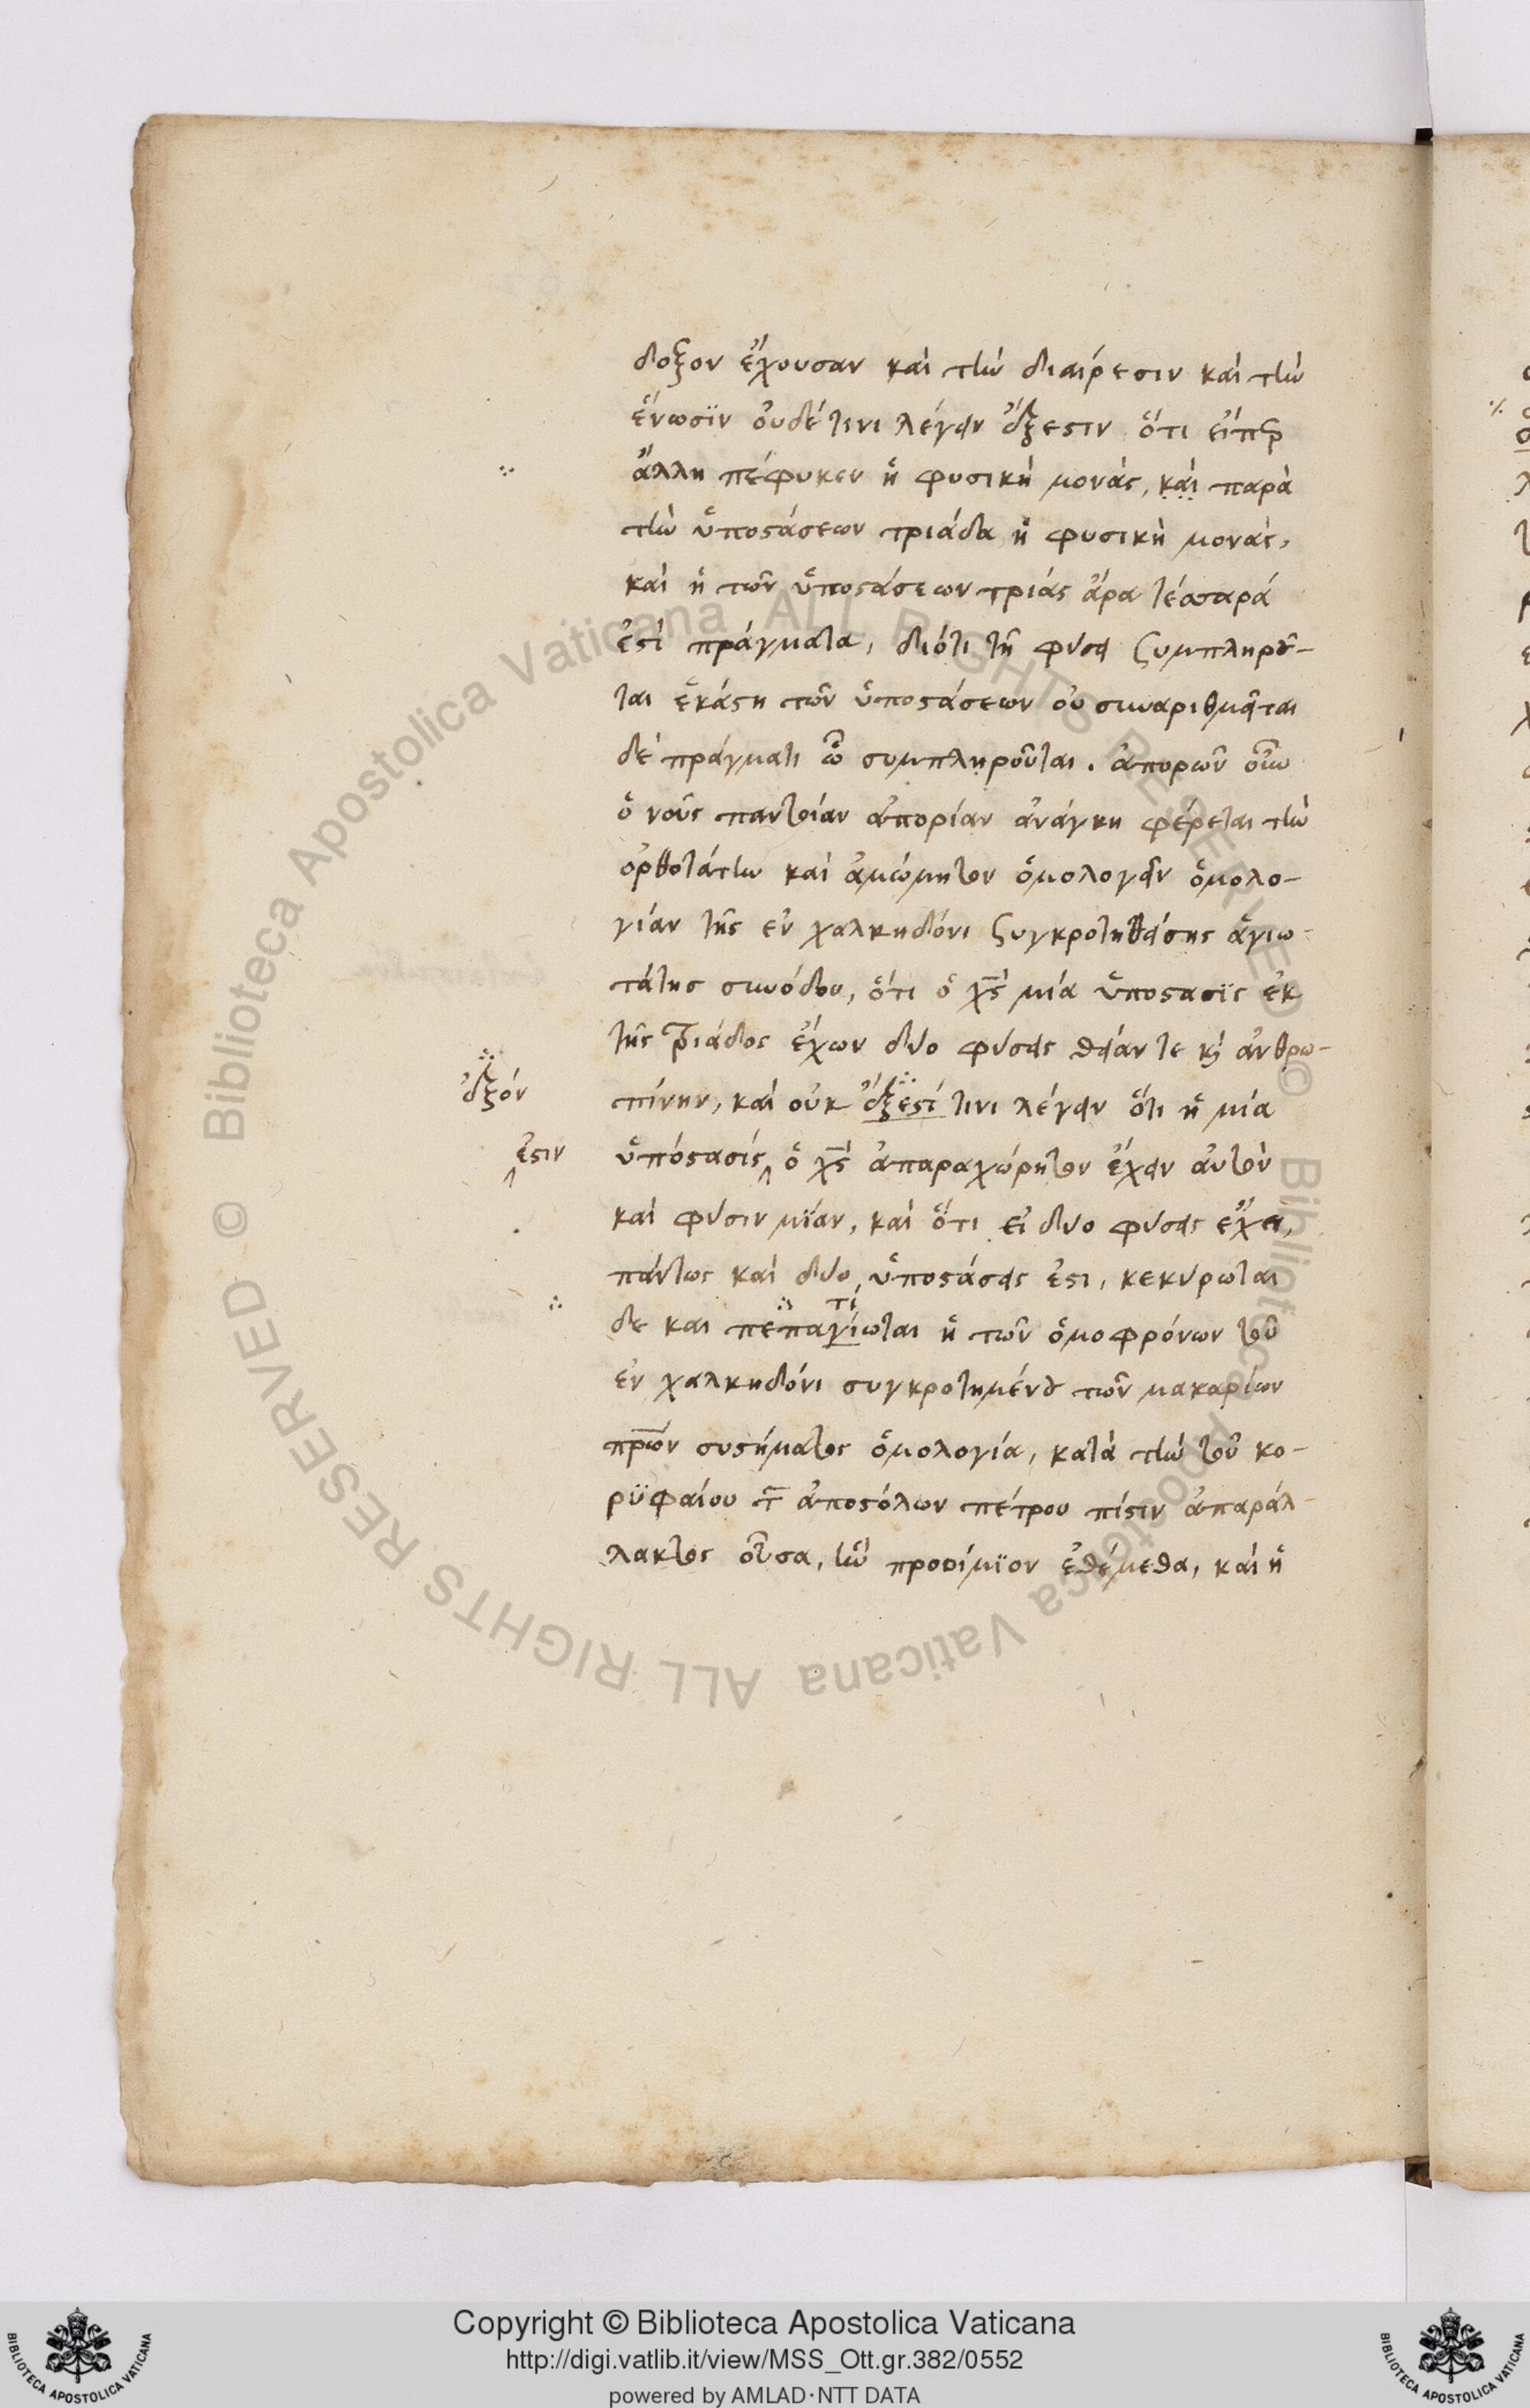 δοξον ἔχουσαν καὶ τὴν διαίρεσιν καὶ τὴν
ἕνωσϊν οὐδέ τινι λέγειν ἔξεστιν ὅτι εἴπερ
ἄλλη πέφυκεν ἡ φυσικὴ μονάς, καὶ παρὰ
τὴν ὑποστάσεων τριάδα ἡ φυσικὴ μονάς,
καὶ ἡ τῶν ὑποστάσεων τριάς ἄρα τέσσαρά
ἐστὶ πράγματα, διότι τῆ φύσει συμπληροῦ-
ται ἑκάστη τῶν ὑποστάσεων οὐ συναριθμεῖται
δὲ πράγματι ὧ συμπληροῦται. ἀπορῶν οὖν
ὁ νοῦς παντοίαν ἀπορίαν ἀνάγκη φέρεται τὴν
ὀρθοτάτην καὶ ἀμώμητον ὁμολογεῖν ὁμολο-
γίαν τῆς ἐν χαλκηδόνι συγκροτηθείσης ἁγιω-
τάτης συνόδου, ὅτι ὁ χς μία ὑποστασϊς ἐκ
τῆς τριάδος ἔχων δύο φύσεις θείαν τε κὶ ἀνθρω-
ἐξόν
πίνην, καὶ οὐκ ἔξεστί τινι λέγειν ὅτι ἡ μία
ἐστιν
ὑπόστασίς ὁ χς ἀπαραχώρητον ἔχειν αὐτὸν
καὶ φύσιν μϊαν, καὶ ὅτι εἰ δύο φύσεις ἔχει,
πάντως καὶ δύο ὑποστάσεις ἐστι, κεκύρωται
τί
δε και πεπαγίωται ἡ τῶν ὁμοφρόνων τοῦ
ἐν χαλκηδόνι συγκροτημένου τῶν μακαρίων
πρων συστήματος ὁμολογία, κατὰ τὴν τοῦ κο-
ρϋφαίου τ ἀποστόλων πέτρου πίστιν ἀπαράλ-
λακτος οὖσα, ἣν προοίμϊον ἐθέμεθα, καὶ ἡ
Copyright © Biblioteca Apostolica Vaticana
http://digi.vatlib.it/view/MSS_Ott.gr.382/0552
powered by AMLAD·NTT DATA